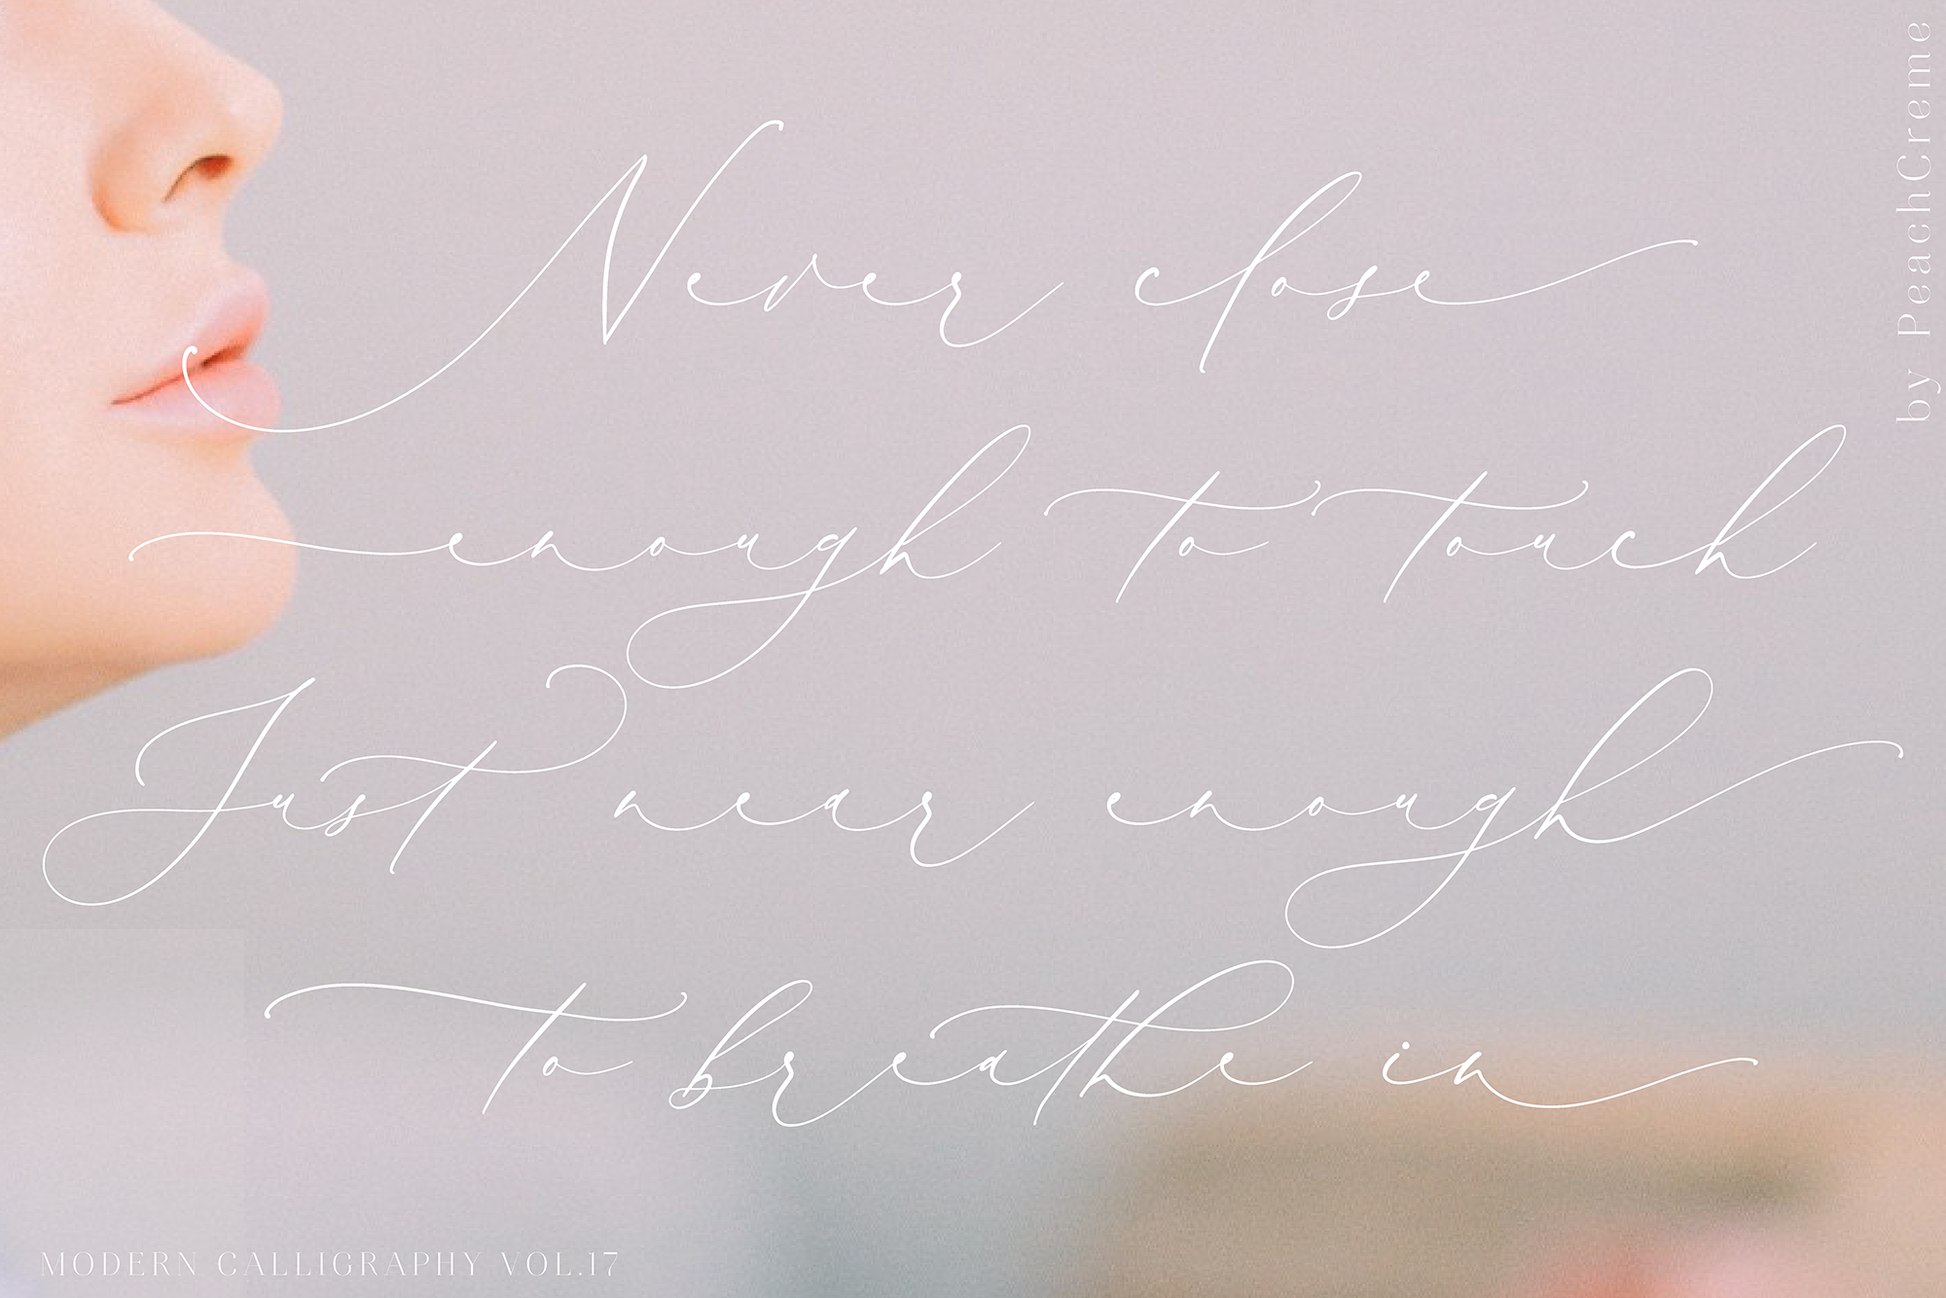 Never close
enough to touch
Just near enough
to breathe in
by PeachCreme
MODERN CALLIGRAPHY VOL.17